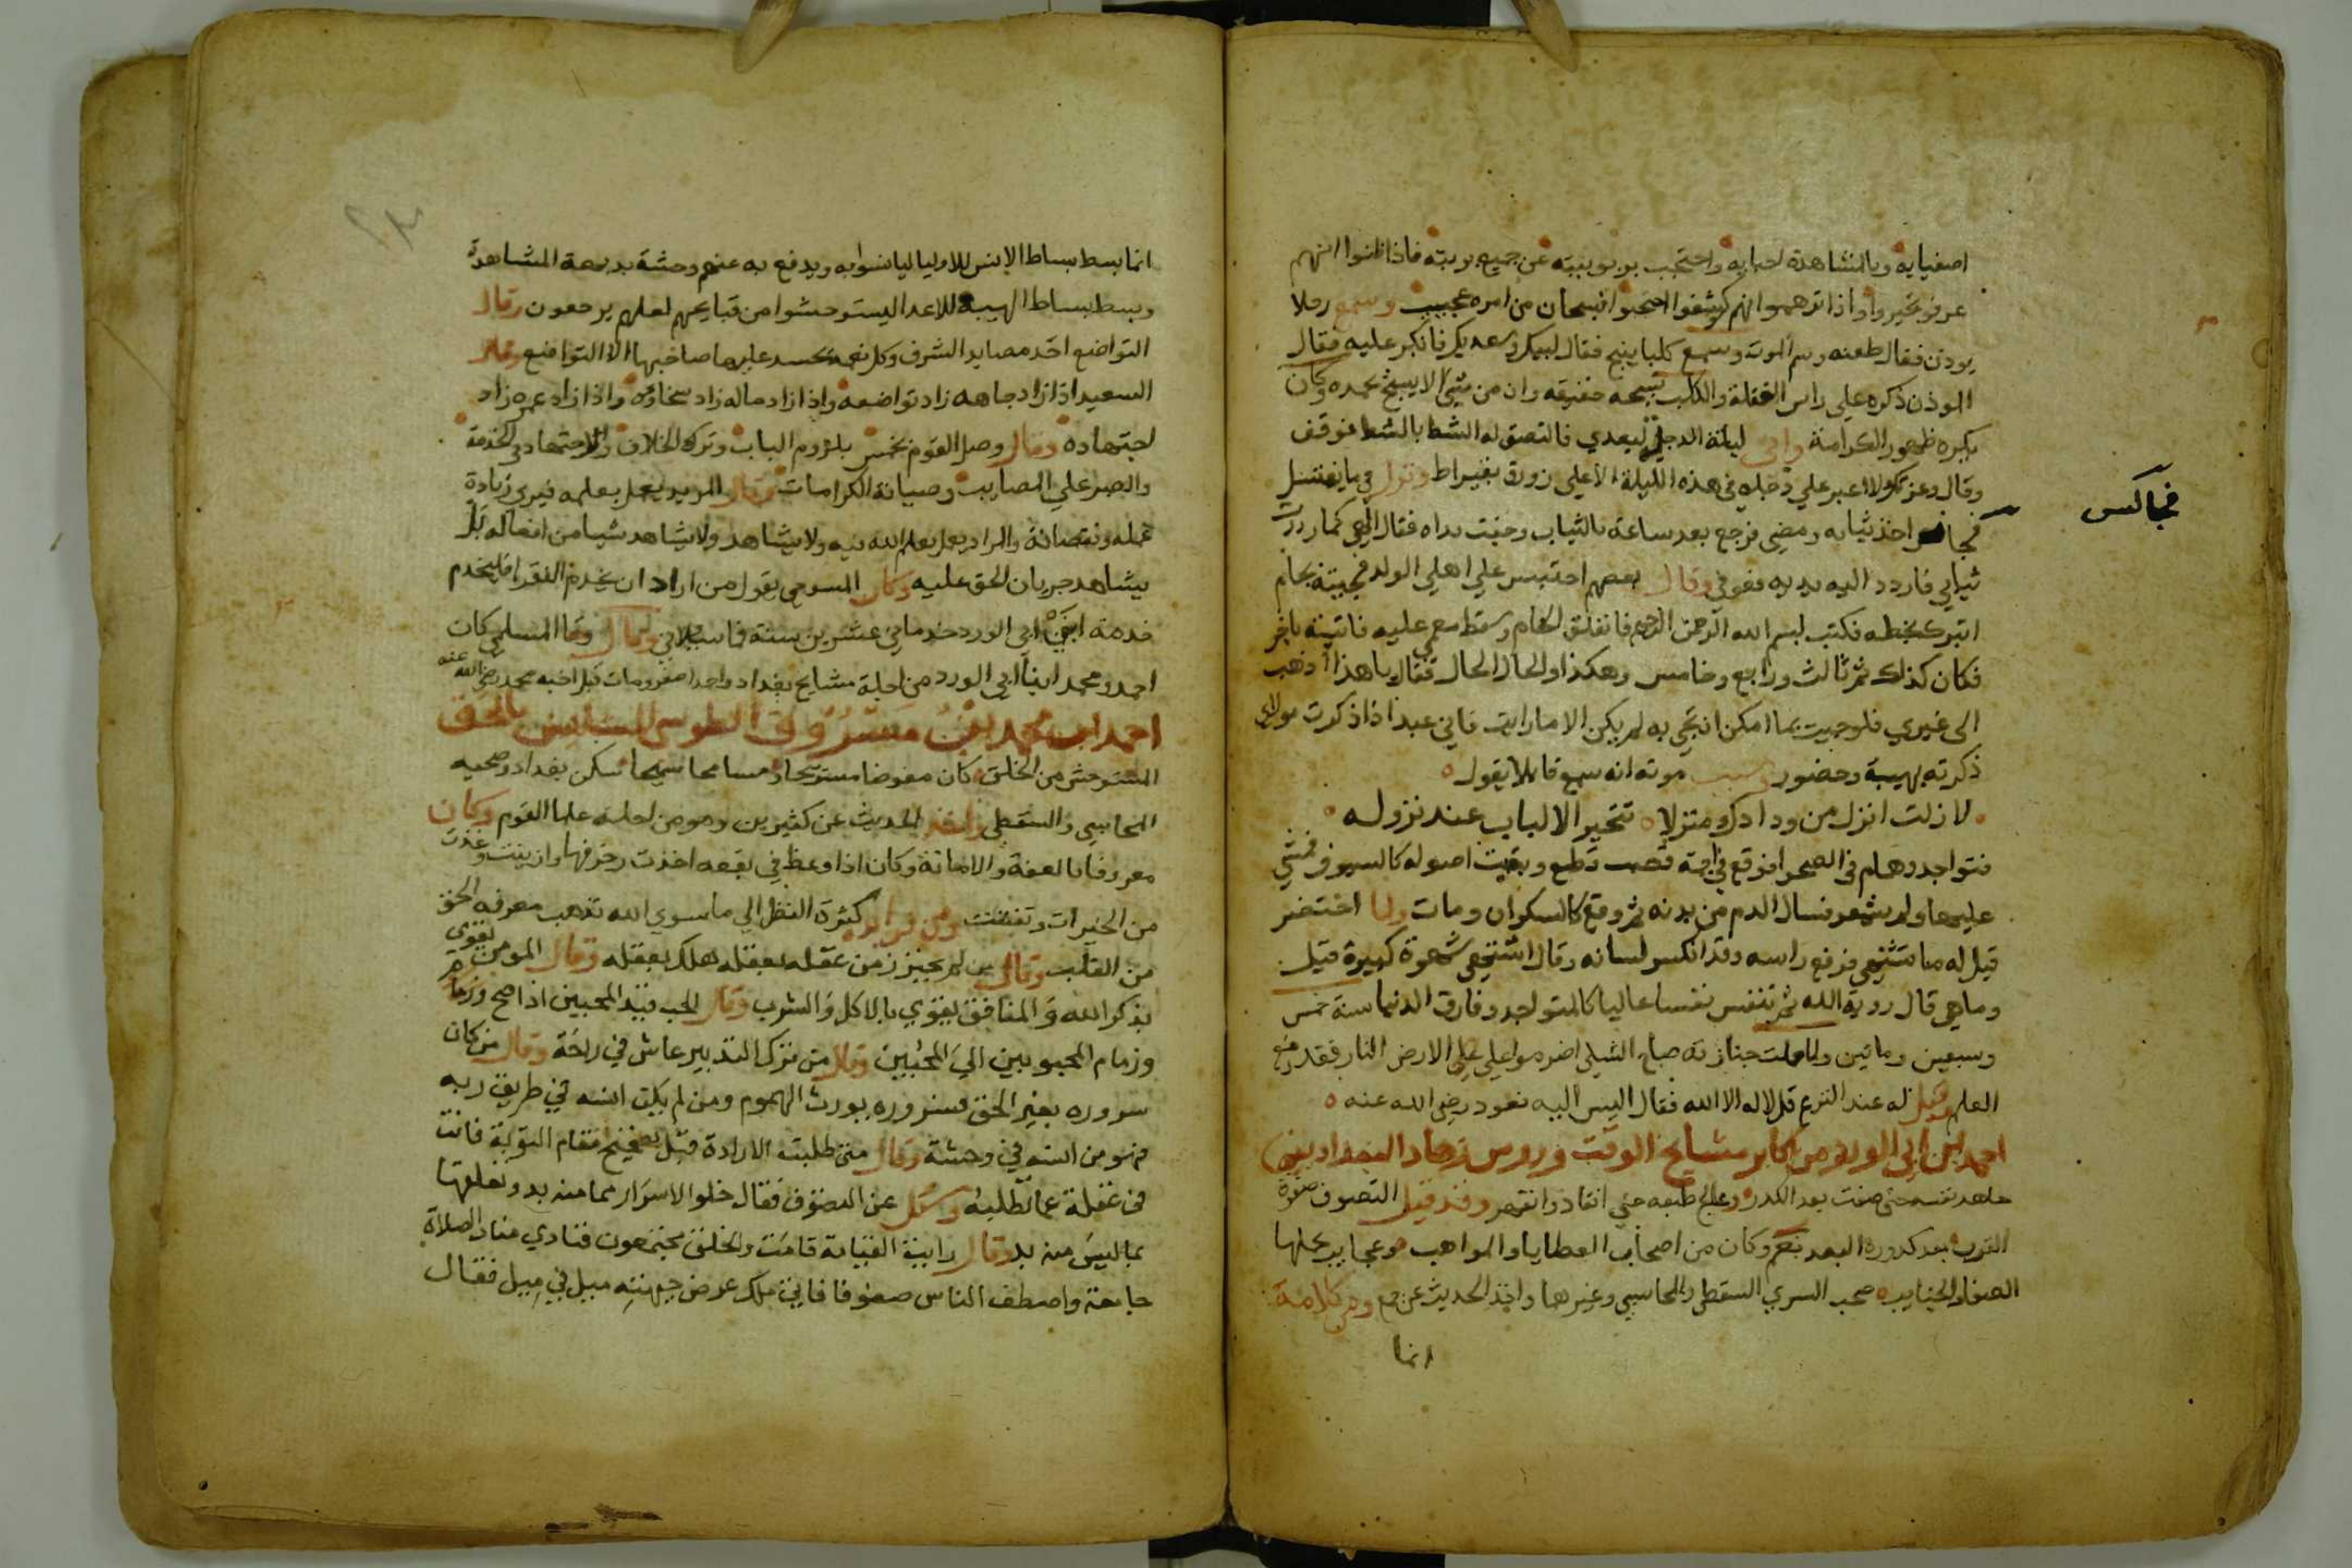 اصفيايه وبالمشاهدة احبابه واحتجب بربوبيته عن جميع بريته فاذا ظنوا انهم
عرفوا تحيروا واذا توهموا انهم كوشفوا احتجبوا فسبحان من امره عجيب وسمع رجلا
يوذن فقال طعنه وسم الموت وسمع كلبا ينبح فقال لبيك وسعديك فانكر عليه فقال
الموذن ذكره على راس الغفلة والكلب يسبحه حقيقه وان من شي الا يسبح بحمده وكان
يكره ظهور الكرامة واتى ليلة الدجلة ليعدي فالتصق له الشط بالشط فوقف
وقال وعزتك لا اعبر على دجله في هذه الليلة الا على زورق بقيراط ونزل في ما يغتسل
فجا اخذ ثيابه ومضى فرجع بعد ساعة بالثياب وجفت يداه فقال الهي كما رددت
فجا لص
ثيابي فاردد اليه يديه فعوفي وقال بعضهم احتبس على اهلي الولد فجيته بجام
اتبرك بخطه فكتب بسم الله الرحمن الرحيم فانفلق الجام وسقط مغمى عليه فاتيته باخر
فكان كذلك ثم ثالث ورابع وخامس وهكذا والحال الحال فقال يا هذا اذهب
الى غيري فلو جيت بما امكن ان تجي به لم يكن الا ما رايت فاني عبد اذا ذكرت مولاي
ذكرته بهيبة وحضور وسبب موته انه سمع قايلا يقول
لا زلت انزل من ودادك منزلا تتحير الالباب عند نزوله
فتواجد وهام في الصحرا فوقع في اجمة قصب قطع وبقيت اصوله كالسيوف فمشي
عليها ولم يشعر فسال الدم من بدنه ثم وقع كالسكران ومات ولما احتضر
قيل له ما تشتهي فرفع راسه وقد انكسر لسانه وقال اشتهي شهوة كبيرة قيل
وما هي قال روية الله ثم تنفس نفسا عاليا كالمتواجد وفارق الدنيا سنة خمس
وسبعين وماتين ولما حملت جنازته صاح الشبلي اضرموا على الارض النار فقد رفع
العلم وقيل له عند النزع قل لا اله الا الله فقال اليس اليه نعود رضي الله عنه
احمد ابن ابي الورد من اكابر مشايخ الوقت وروس زهاد البغداديين
جاهد نفسه حتى صفت بعد الكدر وعالج طبعه حتى انقاد وانقهر وقد قيل التصوف صفوة
القرب بعد كدورة البعد نعم وكان من اصحاب العطايا والمواهب وعجايب
الصفا والجنايب صحب السري السقطي والمحاسبي وغيرهما واخذ الحديث عن جمع ومن كلامه
انما
انما بسط بساط الانس للاوليا ليانسوا به ويدفع به عنهم وحشة بديهة المشاهدة
وبسط بساط الهيبة للاعدا ليستوحشوا من قبايحهم لعلهم يرجعون وقال
التواضع احد مصايد الشرف وكل نعمة يحسد عليها صاحبها الا التواضع وقال
السعيد اذا زاد جاهه زاد تواضعه واذا زاد ماله زاد سخاوه واذا زاد عمره زاد
اجتهاده وقال وصل القوم بخمس بلزوم الباب وترك الخلاف والاجتهاد في الخدمة
والصبر على المصايب وصيانة الكرامات وقال المريد يعمل بعلمه فيرى زيادة
عمله ونقصانه والمراد يعمل بعلم الله فيه ولا يشاهد ولا يشاهد شيا من افعاله بل
يشاهد جريان الحق عليه وكان السوسي يقول من اراد ان يخدم الفقرا فليخدم
خدمة ابني ابي الورد خدماني عشرين سنة فما سبلاني وقال السلمي كان
احمد ومحمد ابنا ابي الورد من اجلة مشايخ بغداد ومات قبل اخيه محمد رضي الله عنه
احمد ابن محمد بن مسروق الطوسي المستانس بالحق
المستوحش من الخلق كان مفوضا مستريحا ومسامحا سميحا سكن بغداد وصحب
المحاسبي والسقطي واخذ الحديث عن كثيرين وهو من اجلة علما القوم وكان
معروفا بالعفة والامانة وكان اذا وعظ في بقعه اخذت زخرفها وازينت وغدت
من الخيرات وتفننت ومن فوايده كثرة النظر الى ما سوى الله تذهب معرفة الحق
من القلب وقال من لم يحترز من عقله بعقله هلك بعقله وقال المومن يقوى
بذكر الله والمنافق يقوى بالاكل والشرب وقال الحب قيد المحبين اذا صح
وزمام المحبوبين الى المحبين وقال من ترك التدبير عاش في راحة وقال من كان
سروره بغير الحق فسروره يورث الهموم ومن لم يكن انسه في طريق ربه
فهو من انسه في وحشة وقال متى طلبت الارادة قبل تصحيح مقام التوبة فانت
في غفلة عما تطلبه وسئل عن التصوف فقال خلو الاسرار مما منه بد وتعلقها
بما ليس منه بد وقال رايت القيامة قامت والخلق مجتمعون فنادى مناد الصلاة
جامعة واصطف الناس صفوفا فاتاني ملك عرض جبهته ميل في ميل فقال